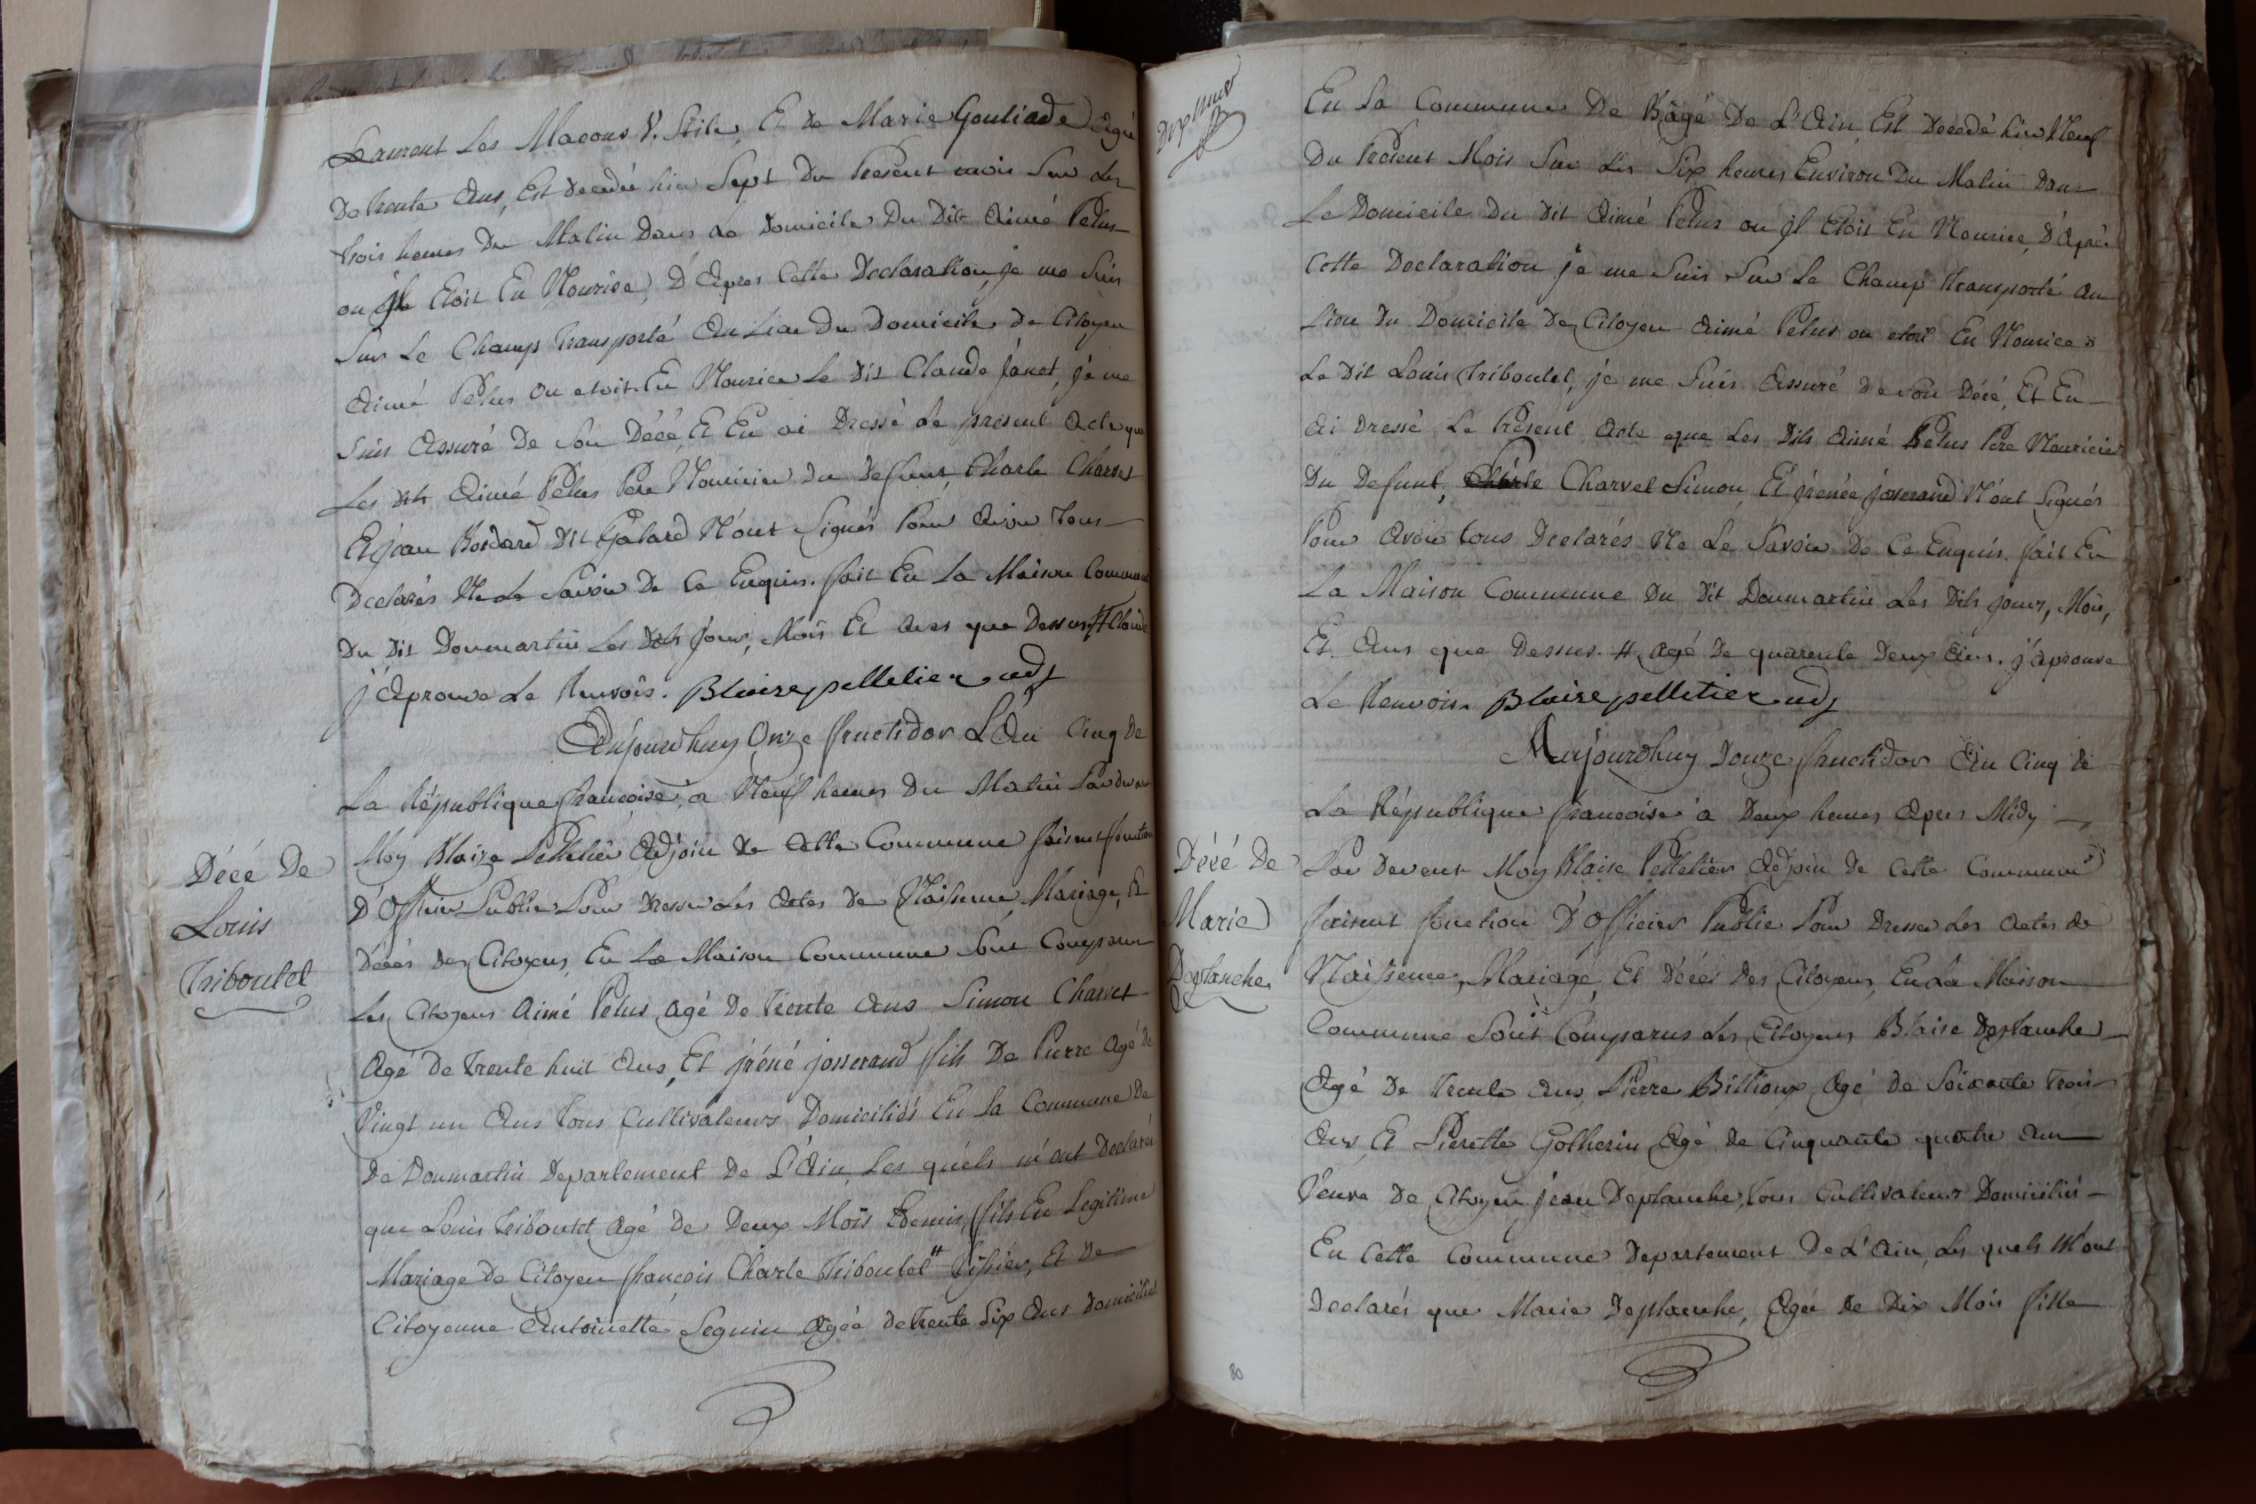 Laurent Les Macons V. Stile, Et de Marie Gouliade agée
De trente Ans, Est decedée hier Sept du Present mois Sur Les
trois heures Du Matin Dans Le Domicile Du Dit Aimé Pelus
ou il Etoit En Nourice, D'Apres Cette Declaration, je me Suis
Sur Le Champ transporté Au Lieu Du Domicile De Citoyen
Aimé Pelus Ou etoit En Nourice Le Dit Claude Janet, je me
Suis Assuré De Son Décé, Et En ai Dressé Le present Acte que
Les dits Aimé Pelus Pere Nouricier du Defunt, Charle Charvet
Et Jean Bordard Dit Galard N'ont Signés Pour Avoir Tous
Declarés Ne Le Savoir De Ce Enquis. fait En La Maison Commune
Du Dit Donmartin Les Dits Jour, Mois Et Ans que Dessus #
j'Aprouve Le Renvois. Blaise pelletier adj
Aujourdhuy Onze fructidor L'An Cinq De
La République francoise, a Neuf heures Du Matin Pardevant
Moy Blaize Pelletier Adjoin De Cette Commune faisent fonction
D'Officier Public Pour Dresser Les Actes De Naissence, Mariage, Et
Décés Des Citoyens, En La Maison Commune Sont Comparus
Les Citoyens Aimé Pelus Agé De Trente Ans Simon Charvet
Agé De Trente huit Ans, Et jréné josserand fils De Pierre Agé De
Vingt un Ans Tous Cultivateurs Domiciliés En La Commune De
De Donmartin Departement De L'Ain, Les quéls m'ont Declarés
que Louis Triboulet Agé De Deux Mois Edemis, fils En Legitime
Mariage De Citoyen francois Charle Triboulet # Et De
Citoyenne Antoinette Seguin Agéé De Trente Six Ans Domiciliés
Décé De
Louis
Triboulet
Dix Neuf
En La Commune De Bagé De L'Ain, Est Decedé hier Neuf
Du Present Mois Sur Les Six heures Environ Du Matin Dans
Le Domicile Du Dit Aimé Pelus ou Il Etoit En Nourice, D'Après
Cette Declaration je me Suis Sur Le Champ Transporté Au
Lieu Du Domicile De Citoyen Aimé Pelus ou etoit En Nourice
Le Dit Louis Triboulet, je me Suis Assuré De Son Décé, Et En
Ai Dressé Le Présent Acte que Les Dits Aimé Pelus Pere Nouricier
Du Defunt, Charle Charvet Simon, Et jrenée josserand N'ont Signés
Pour Avoir tous Declarés Ne Le Savoir De Ce Enquis. fait En
La Maison Commune Du Dit Donmartin Les Dits jour, Mois,
Et Ans que Dessus. # Agé De quarente Deux Ans. j'aprouve
Le Renvois. Blaise pelletier adj
Aujourdhuy Douze fructidor An Cinq De
La République francoise a Deux heures Apres Midy
Par Devent Moy Blaise Pelletier Adjoin De Cette Commune
faisent fonction D'Officier Public Pour Dresser Les Actes De
Naissence, Mariage, Et Décés Des Citoyens, En La Maison
Commune Sont Comparus Les Citoyens Blaise Deplanche
Agé De Trente Ans, Pierre Billioux Agé De Soixante Trois
Ans, Et Pierette Gotherin Agé De Cinquante quatre Ans
Veuve De Citoyen jean Deplanche, tous Cultivateurs Domiciliés
En Cette Commune Departement De L'Ain, Les quels M'ont
Declarés que Marie Deplanche, Agée De Dix Mois fille
Décé De
Marie
Deplanche
80